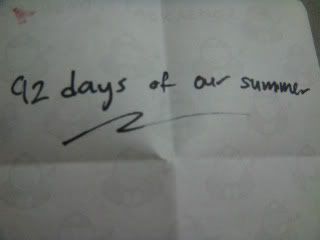 92 days of our summer